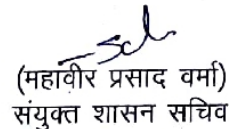 Sd
(महावीर प्रसाद वर्मा)
संयुक्त शासन सचिव